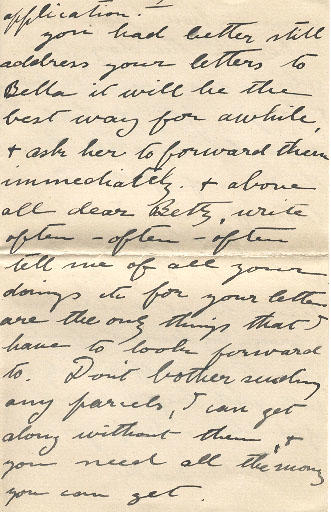 application. -
you had better still
address your letters to
Bella it will be the
best way for awhile,
& ask her to forward them
immediately. & above
all dear Betty, write
often - often - often
tell me of all your
doings etc for your letters
are the only things that I
have to look forward
to. Dont bother sending
any parcels, I can get
along without them, &
you need all the money
you can get.